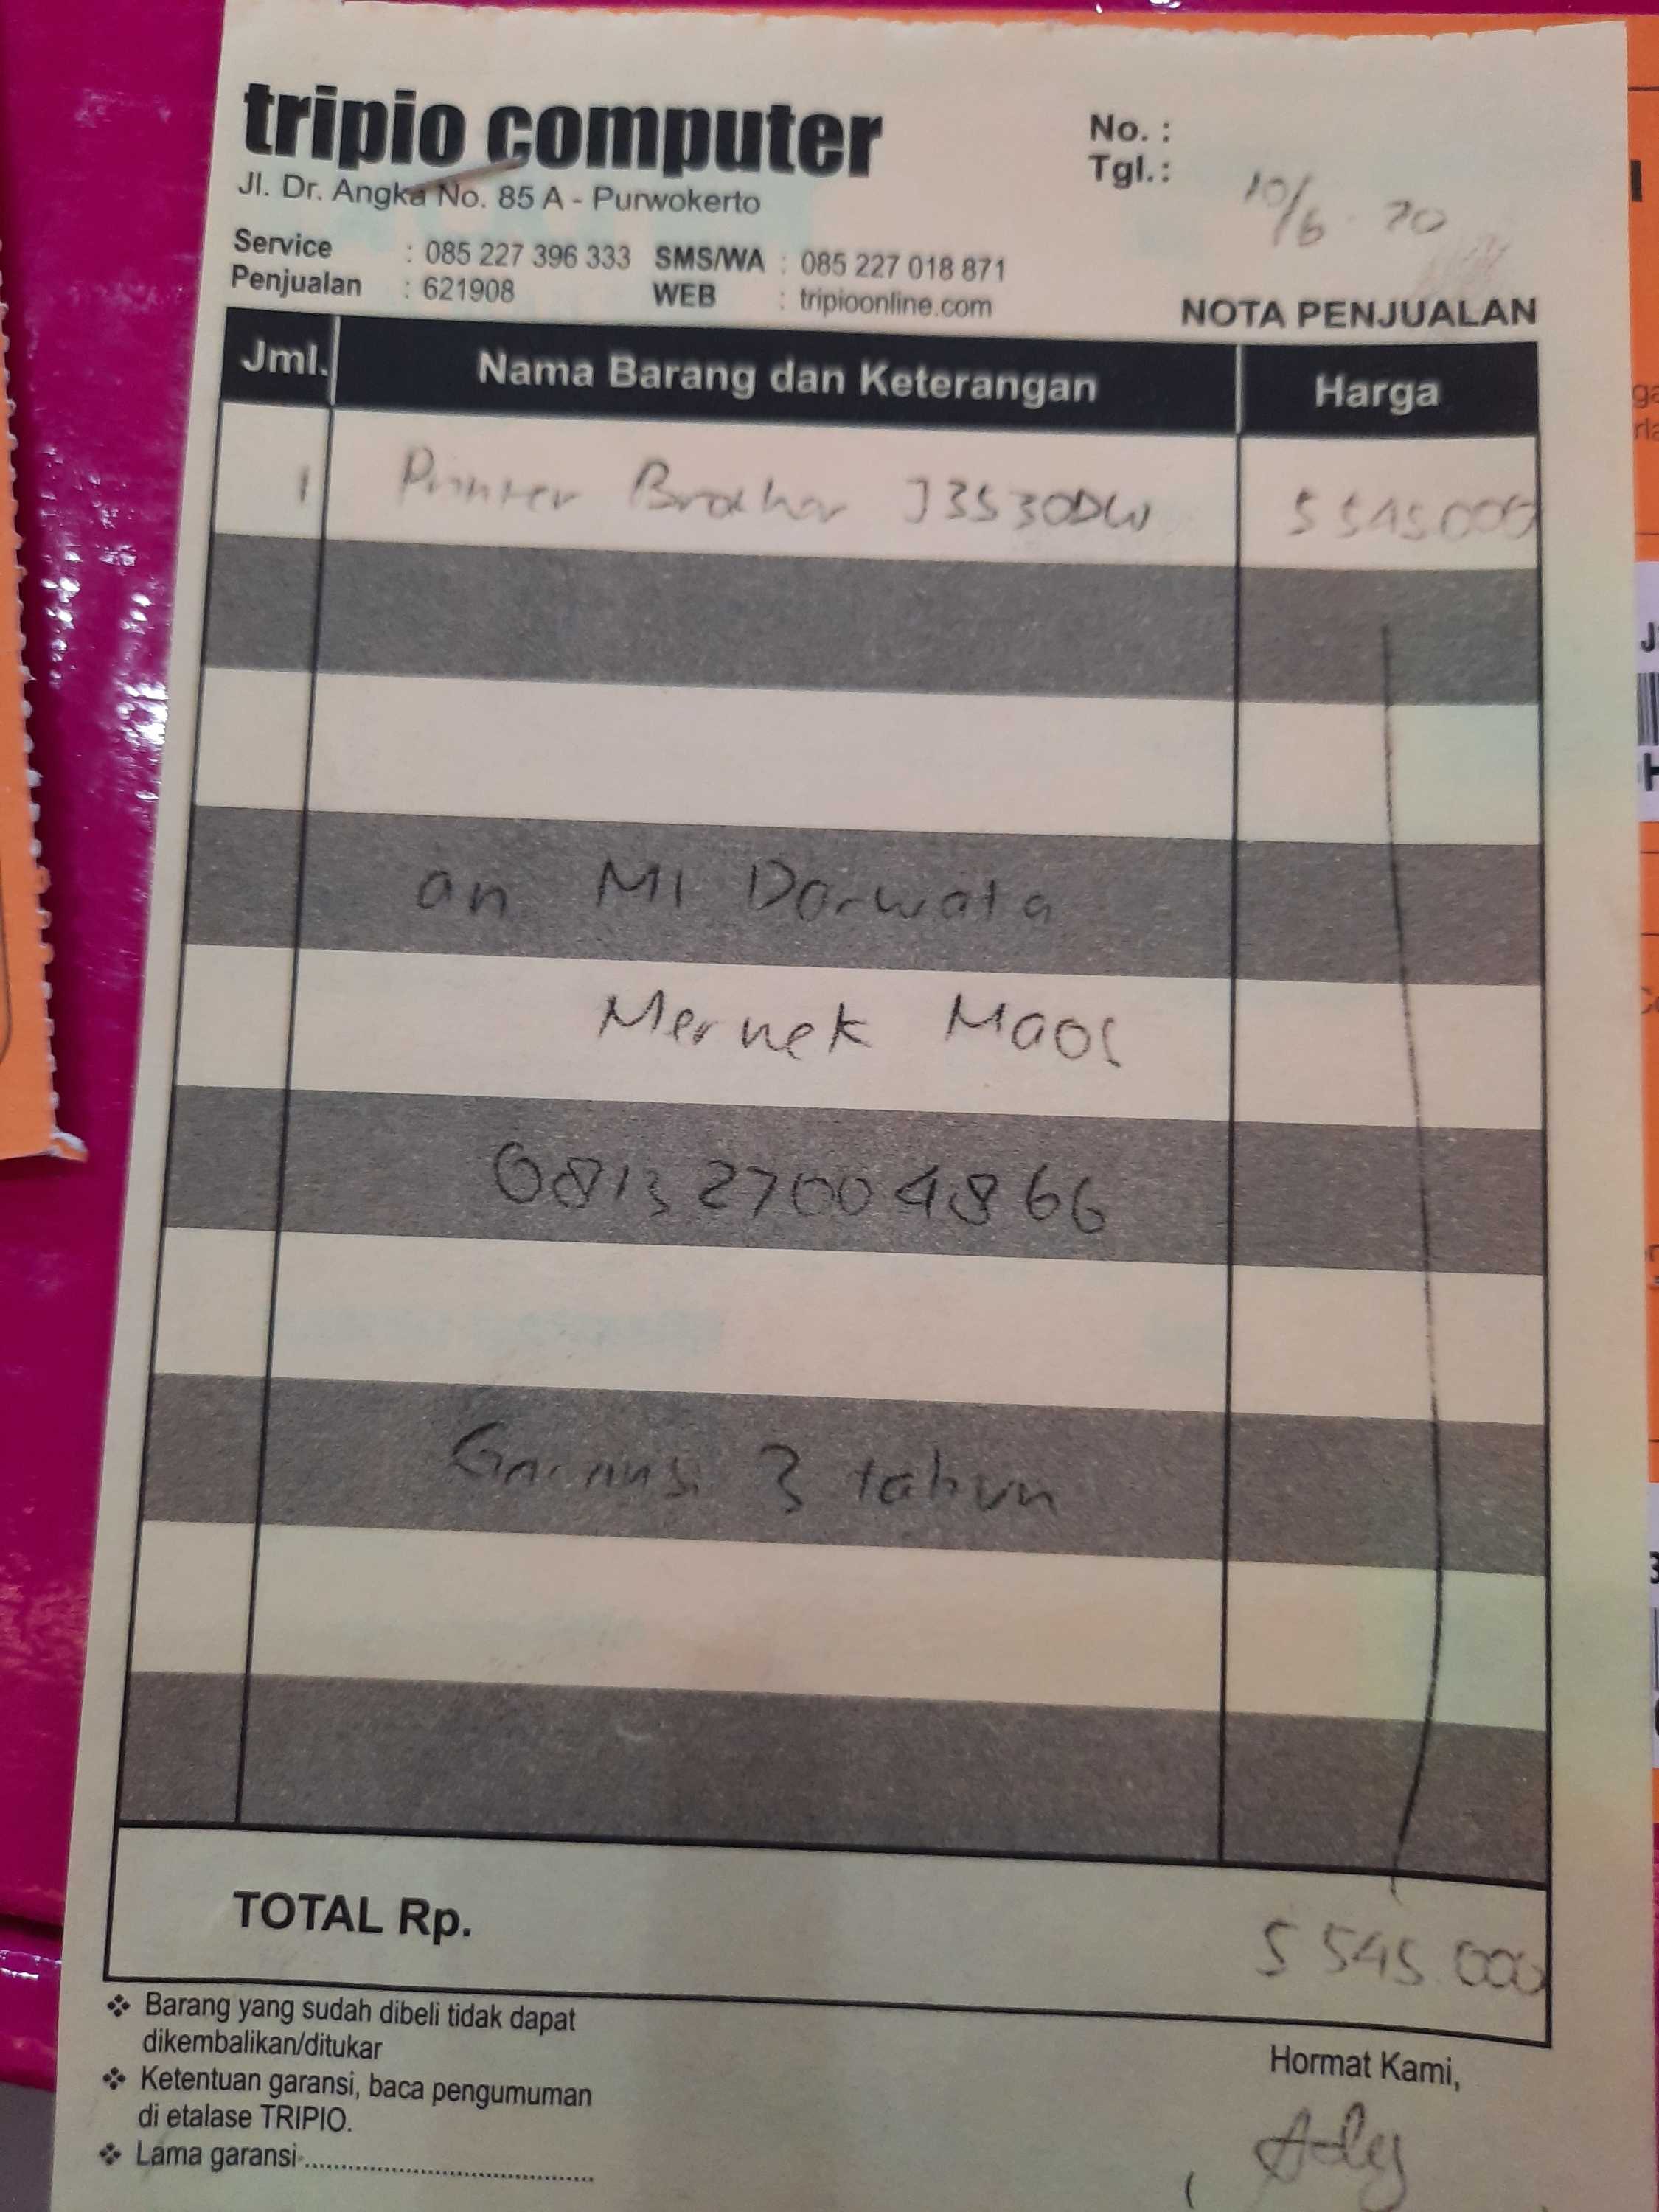 tripio computer
Jl. Dr. Angka No. 85 A - Purwokerto
No. :
Tgl.: 10/6 - 20
Service : 085 227 396 333 SMS/WA : 085 227 018 871
Penjualan : 621908 WEB : tripioonline.com
NOTA PENJUALAN
Jml. Nama Barang dan Keterangan Harga
1 Printer Brother J3530DW 5 545 000
an MI Darwata
Mernek Maos
0813 2700 4866
Garansi 3 tahun
TOTAL Rp. 5 545 000
❖ Barang yang sudah dibeli tidak dapat
dikembalikan/ditukar
❖ Ketentuan garansi, baca pengumuman
di etalase TRIPIO.
❖ Lama garansi
Hormat Kami,